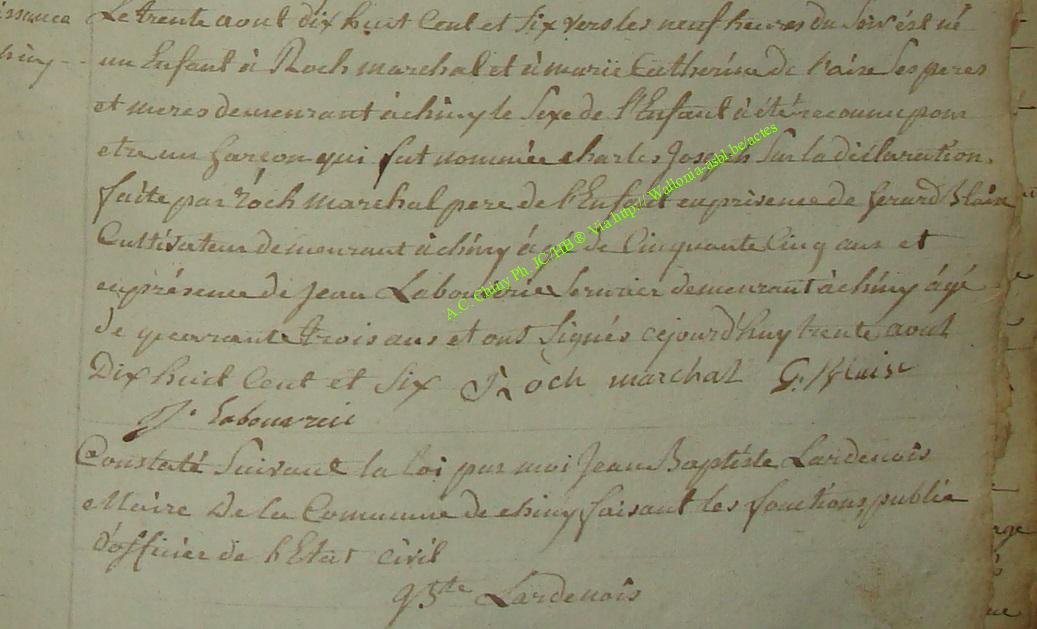 Le trente aout dix huit Cent et Six vers les neuf heures du Soir ést né
un Enfant à Roch marchal et à marie Catherine de l'aire Ses peres
et meres demeurant à chiny le Sexe de l'Enfant à été reconnu pour
etre un garçon qui fut nommée charles Joseph Sur la déclaration
faite par Roch marchal pere de l'Enfant en présence de Gerard Blaise
Cultivateur demeurant à chiny agé de Cinquante Cinq ans et
en présence de Jean Labouverie Serurier demeurant à chiny ágé
de quarante trois ans et ont Signés cejourd'huy trente aout
Dix huit Cent et Six Roch marchal G. Blaise
J. Labouverie
Constaté Suivant la loi par moi Jean Baptiste Lardenois
Maire De la Commune de chiny faisant les fonctions public
d'officier de l'Etat civil
Lardenois
A.C. Chiny Ph. JC HB® Via http://Wallonia-asbl.be/actes